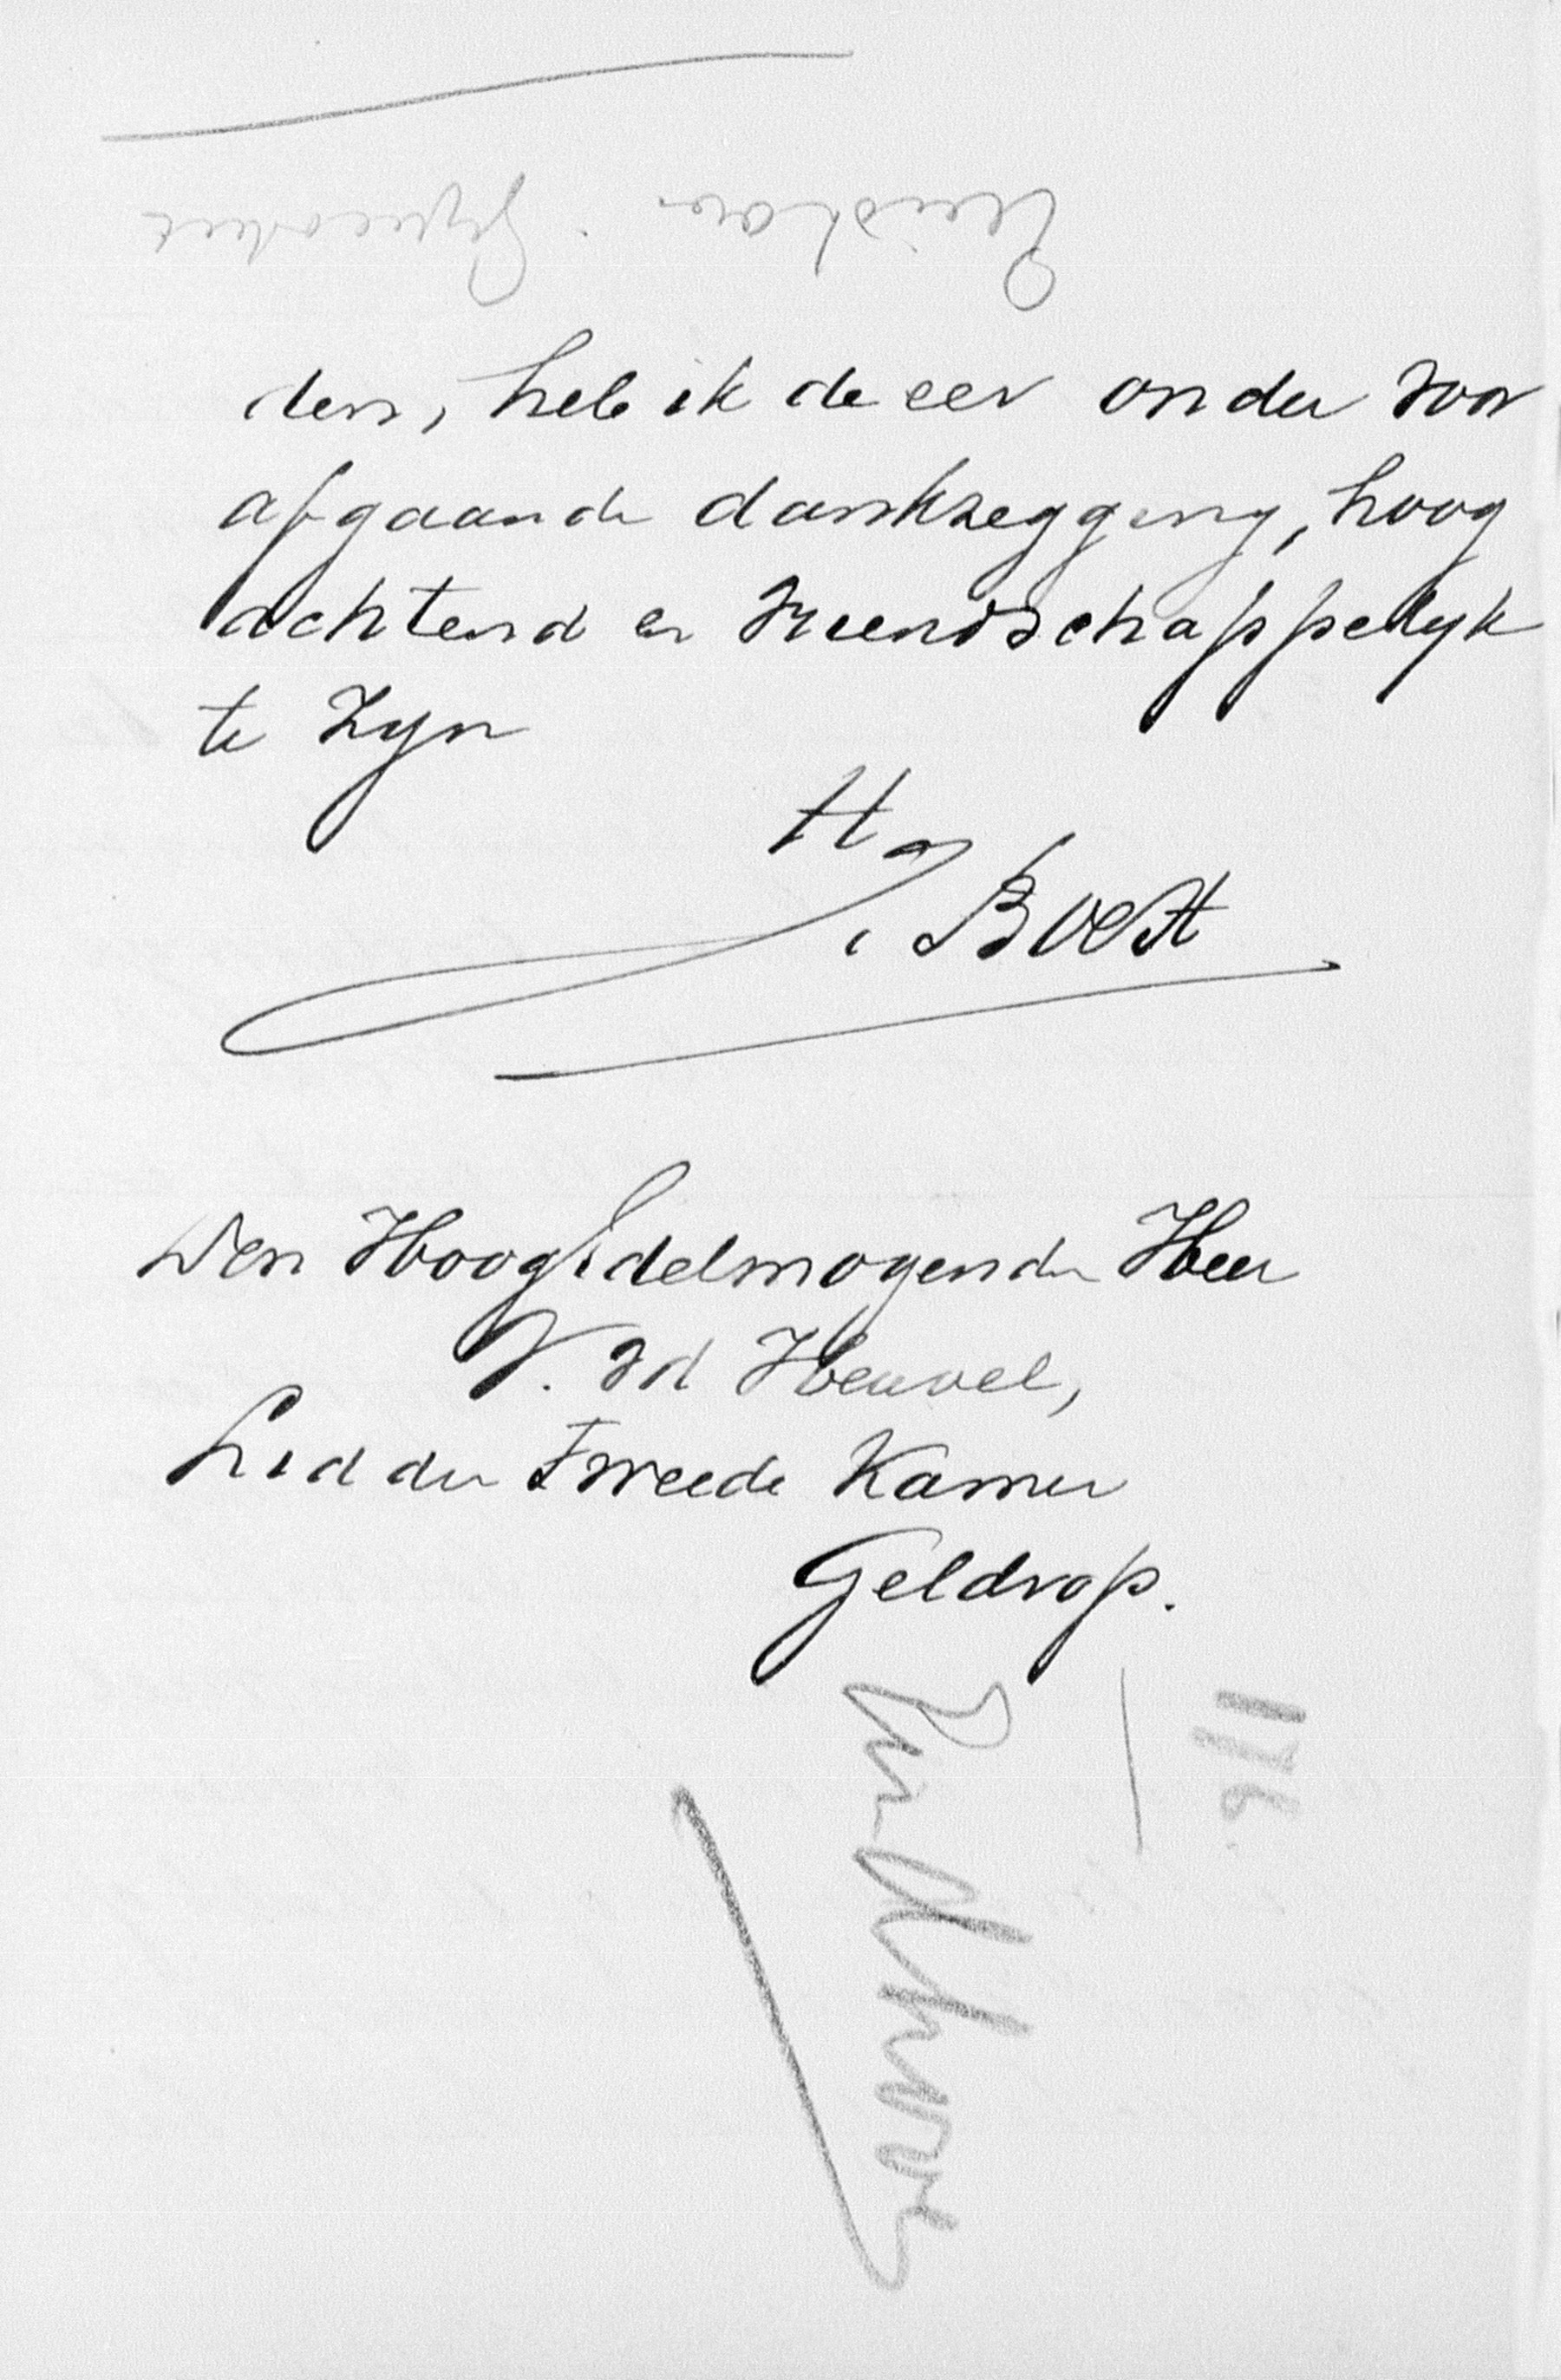 den, heb ik de eer onder voor
afgaande dankzegging, hoog
achtend en vriendschappelyk
te zyn
H
v. Boest
Den HoogEdelmogenden Heer
V. vd Heuvel,
Lid der Tweede Kamer
Geldrop.
176
Eindhoven